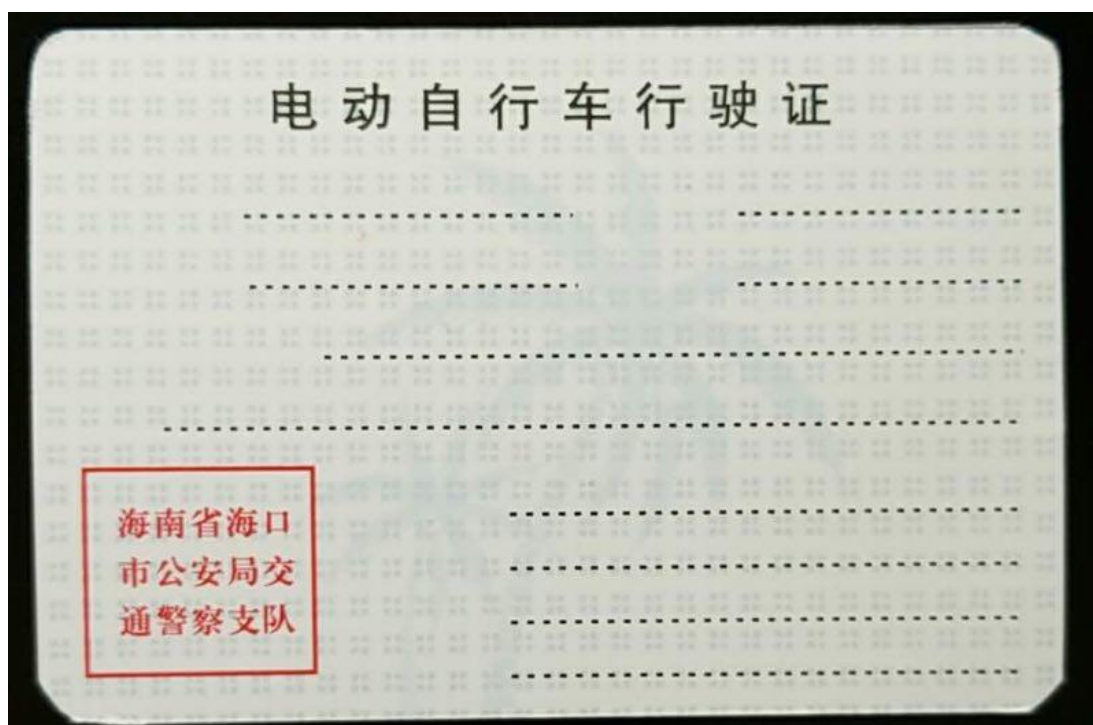 电动自行车行驶证
海南省海口
市公安局交
通警察支队